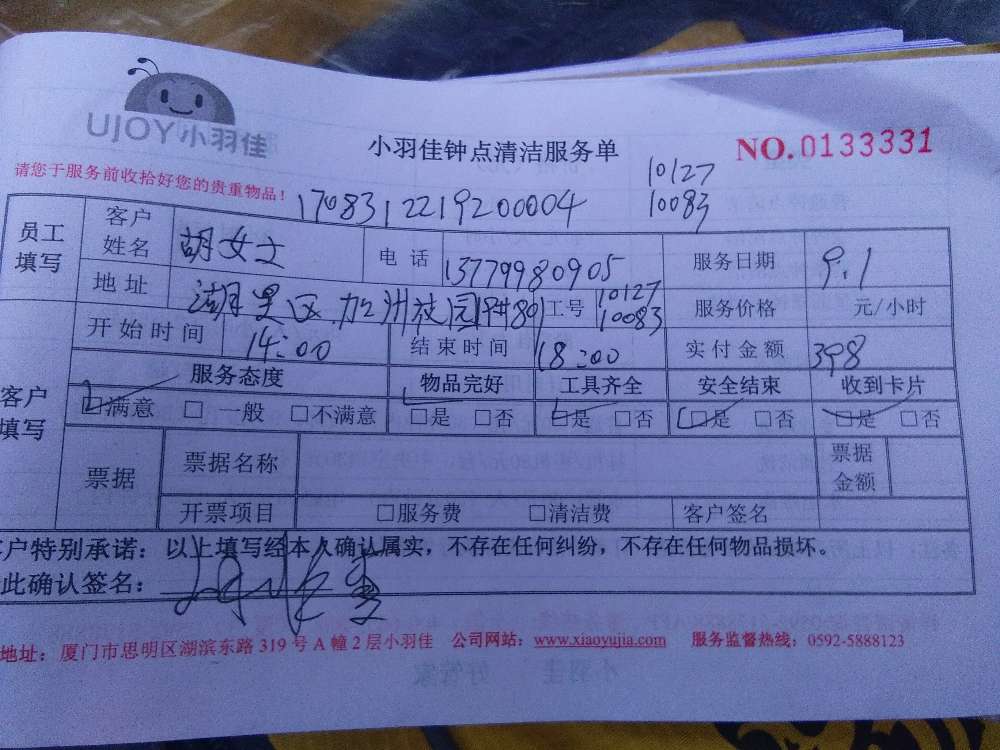 UJOY小羽佳
小羽佳钟点清洁服务单
NO.0133331
请您于服务前收拾好您的贵重物品!
10127
17083122219200004 10083
员工填写 客户姓名 胡女士 电话 13779980905 服务日期 9.1
地址 湖里区加州花园 工号 10127 10083 服务价格 元/小时
客户填写 开始时间 14:00 结束时间 18:00 实付金额 398
服务态度 物品完好 工具齐全 安全结束 收到卡片
☑满意 □一般 □不满意 ☑是 □否 ☑是 □否 ☑是 □否 ☑是 □否
票据 票据名称 票据金额
开票项目 □服务费 □清洁费 客户签名
客户特别承诺:以上填写经本人确认属实,不存在任何纠纷,不存在任何物品损坏。
此确认签名:
地址:厦门市思明区湖滨东路319号A幢2层小羽佳 公司网站:www.xiaoyujia.com 服务监督热线:0592-5888123